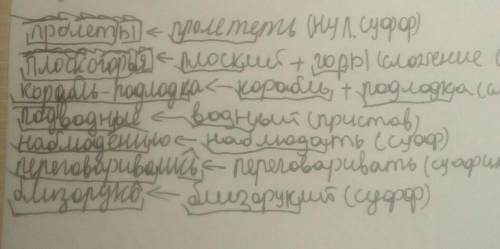 пролеты ← пролететь (нул. суффр)
плоскогорья ← плоский + горы (сложение (
корабль-подлодка ← корабль + подлодка (сл
подводные ← водный (пристав)
наблюдению ← наблюдать (суфф)
переговаривались ← переговаривать (суффик
близоруко ← близорукий (суффр)